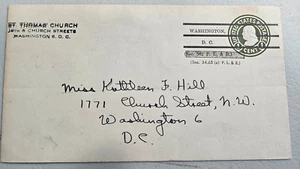 ST. THOMAS' CHURCH
18TH & CHURCH STREETS
WASHINGTON 6, D. C.
WASHINGTON,
D. C.
(Sec. 34.65 (e) P. L. & R.)
UNITED STATES
CENT
Miss Kathleen F. Hill
1771 Church Street, N.W.
Washington 6
D.C.